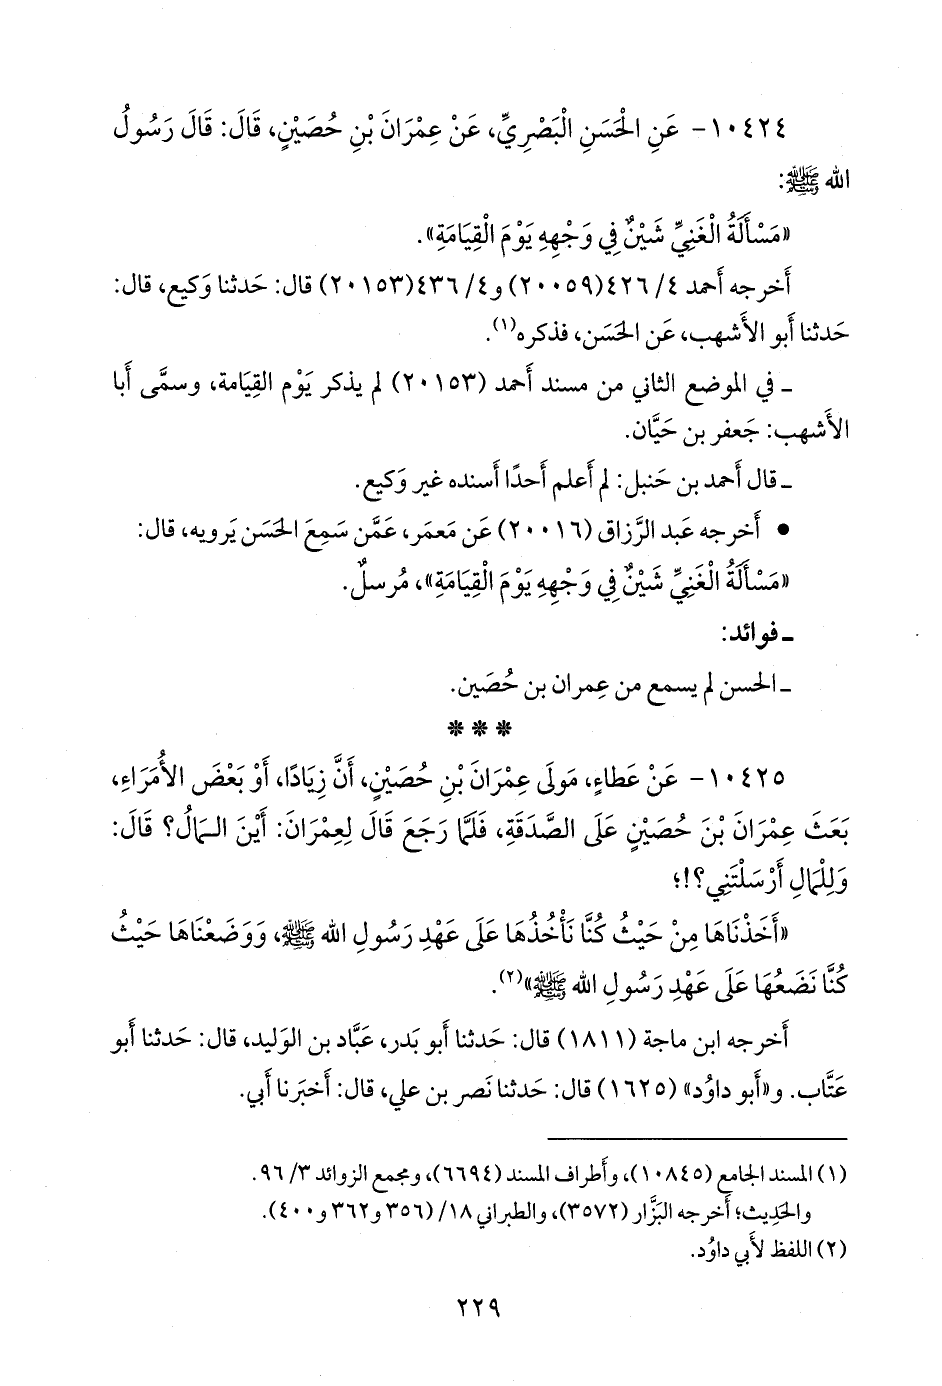 ١٠٤٢٤- عَنِ الْحَسَنِ الْبَصْرِيِّ، عَنْ عِمْرَانَ بْنِ حُصَيْنٍ، قَالَ: قَالَ رَسُولُ
الله ﷺ:
«مَسْأَلَةُ الْغَنِيِّ شَيْنٌ فِي وَجْهِهِ يَوْمَ الْقِيَامَةِ».
أَخرجه أَحمد ٤/ ٤٢٦(٢٠٠٥٩) و٤/ ٤٣٦(٢٠١٥٣) قال: حَدثنا وَكيع، قال:
حَدثنا أَبو الأَشهب، عَن الحَسَن، فذكره(١).
ـ في الموضع الثاني من مسند أَحمد (٢٠١٥٣) لم يذكر يَوْم القِيَامة، وسمَّى أَبا
الأَشهب: جَعفر بن حَيَّان.
ـ قال أَحمد بن حَنبل: لم أَعلم أَحدًا أَسنده غير وَكيع.
• أَخرجه عَبد الرَّزاق (٢٠٠١٦) عَن مَعمَر، عَمَّن سَمِعَ الحَسَن يَرويه، قال:
«مَسْأَلَةُ الْغَنِيِّ شَيْنٌ فِي وَجْهِهِ يَوْمَ الْقِيَامَةِ»، مُرسلٌ.
ـ فوائد:
ـ الحسن لم يسمع من عِمران بن حُصَين.
***
١٠٤٢٥- عَنْ عَطَاءٍ، مَولَى عِمْرَانَ بْنِ حُصَيْنٍ، أَنَّ زِيَادًا، أَوْ بَعْضَ الأُمَرَاءِ،
بَعَثَ عِمْرَانَ بْنَ حُصَيْنٍ عَلَى الصَّدَقَةِ، فَلَمَّا رَجَعَ قَالَ لِعِمْرَانَ: أَيْنَ الـمَالُ؟ قَالَ:
وَلِلْمَالِ أَرْسَلْتَنِي؟!؛
«أَخَذْنَاهَا مِنْ حَيْثُ كُنَّا نَأْخُذُهَا عَلَى عَهْدِ رَسُولِ الله ﷺ، وَوَضَعْنَاهَا حَيْثُ
كُنَّا نَضَعُهَا عَلَى عَهْدِ رَسُولِ الله ﷺ»(٢).
أَخرجه ابن ماجة (١٨١١) قال: حَدثنا أَبو بَدر، عَبَّاد بن الوَليد، قال: حَدثنا أَبو
عَتَّاب. و«أَبو داوُد» (١٦٢٥) قال: حَدثنا نَصر بن علي، قال: أَخبَرنا أَبي.
(١) المسند الجامع (١٠٨٤٥)، وأَطراف المسند (٦٦٩٤)، ومجمع الزوائد ٣/ ٩٦.
والحَدِيث؛ أَخرجه البَزَّار (٣٥٧٢)، والطبراني ١٨/ (٣٥٦ و٣٦٢ و٤٠٠).
(٢) اللفظ لأَبي داوُد.
٢٢٩